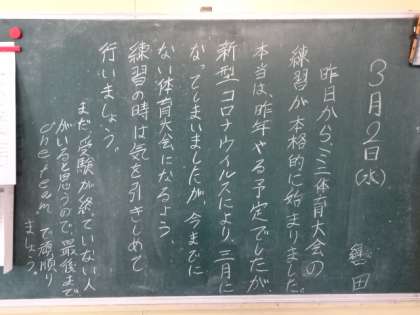 3月2日(水)
昨日から、ミニ体育大会の
練習が本格的に始まりました。
本当は、昨年やる予定でしたが、
新型コロナウイルスにより、三月に
なってしまいましたが、今までに
ない体育大会になるよう、
練習の時は気を引きしめて
行いましょう。
まだ受験が終っていない人
がいると思うので、最後まで
one team で頑順り
ましょう。
田